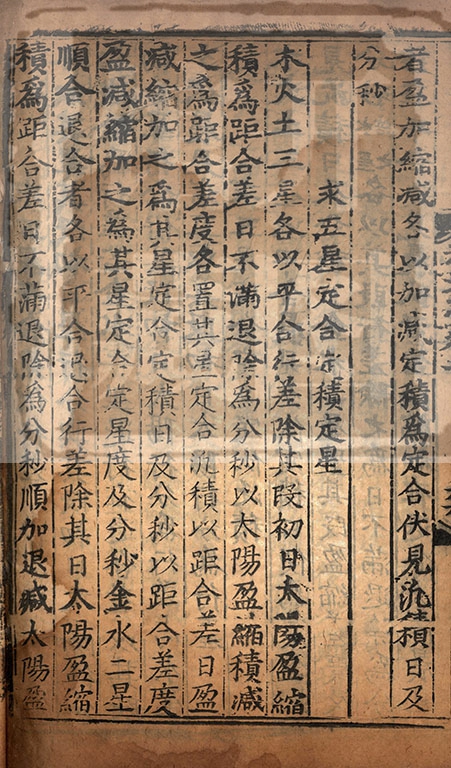 者盈加縮減各以加減定積為定合伏見汎積日及
分秒
求五星定合定積定星
木火土三星各以平合行差除其段初日太陽盈縮
積爲距合差日不滿退除為分秒以太陽盈縮積減
之爲距合差度各置其星定合汎積以距合差日盈
減縮加之爲其星定合定積日及分秒以距合差度
盈減縮加之為其星定合定星度及分秒金水二星
順合退合者各以平合退合行差除其日太陽盈縮
積爲距合差日不滿退除為分秒順加退減太陽盈